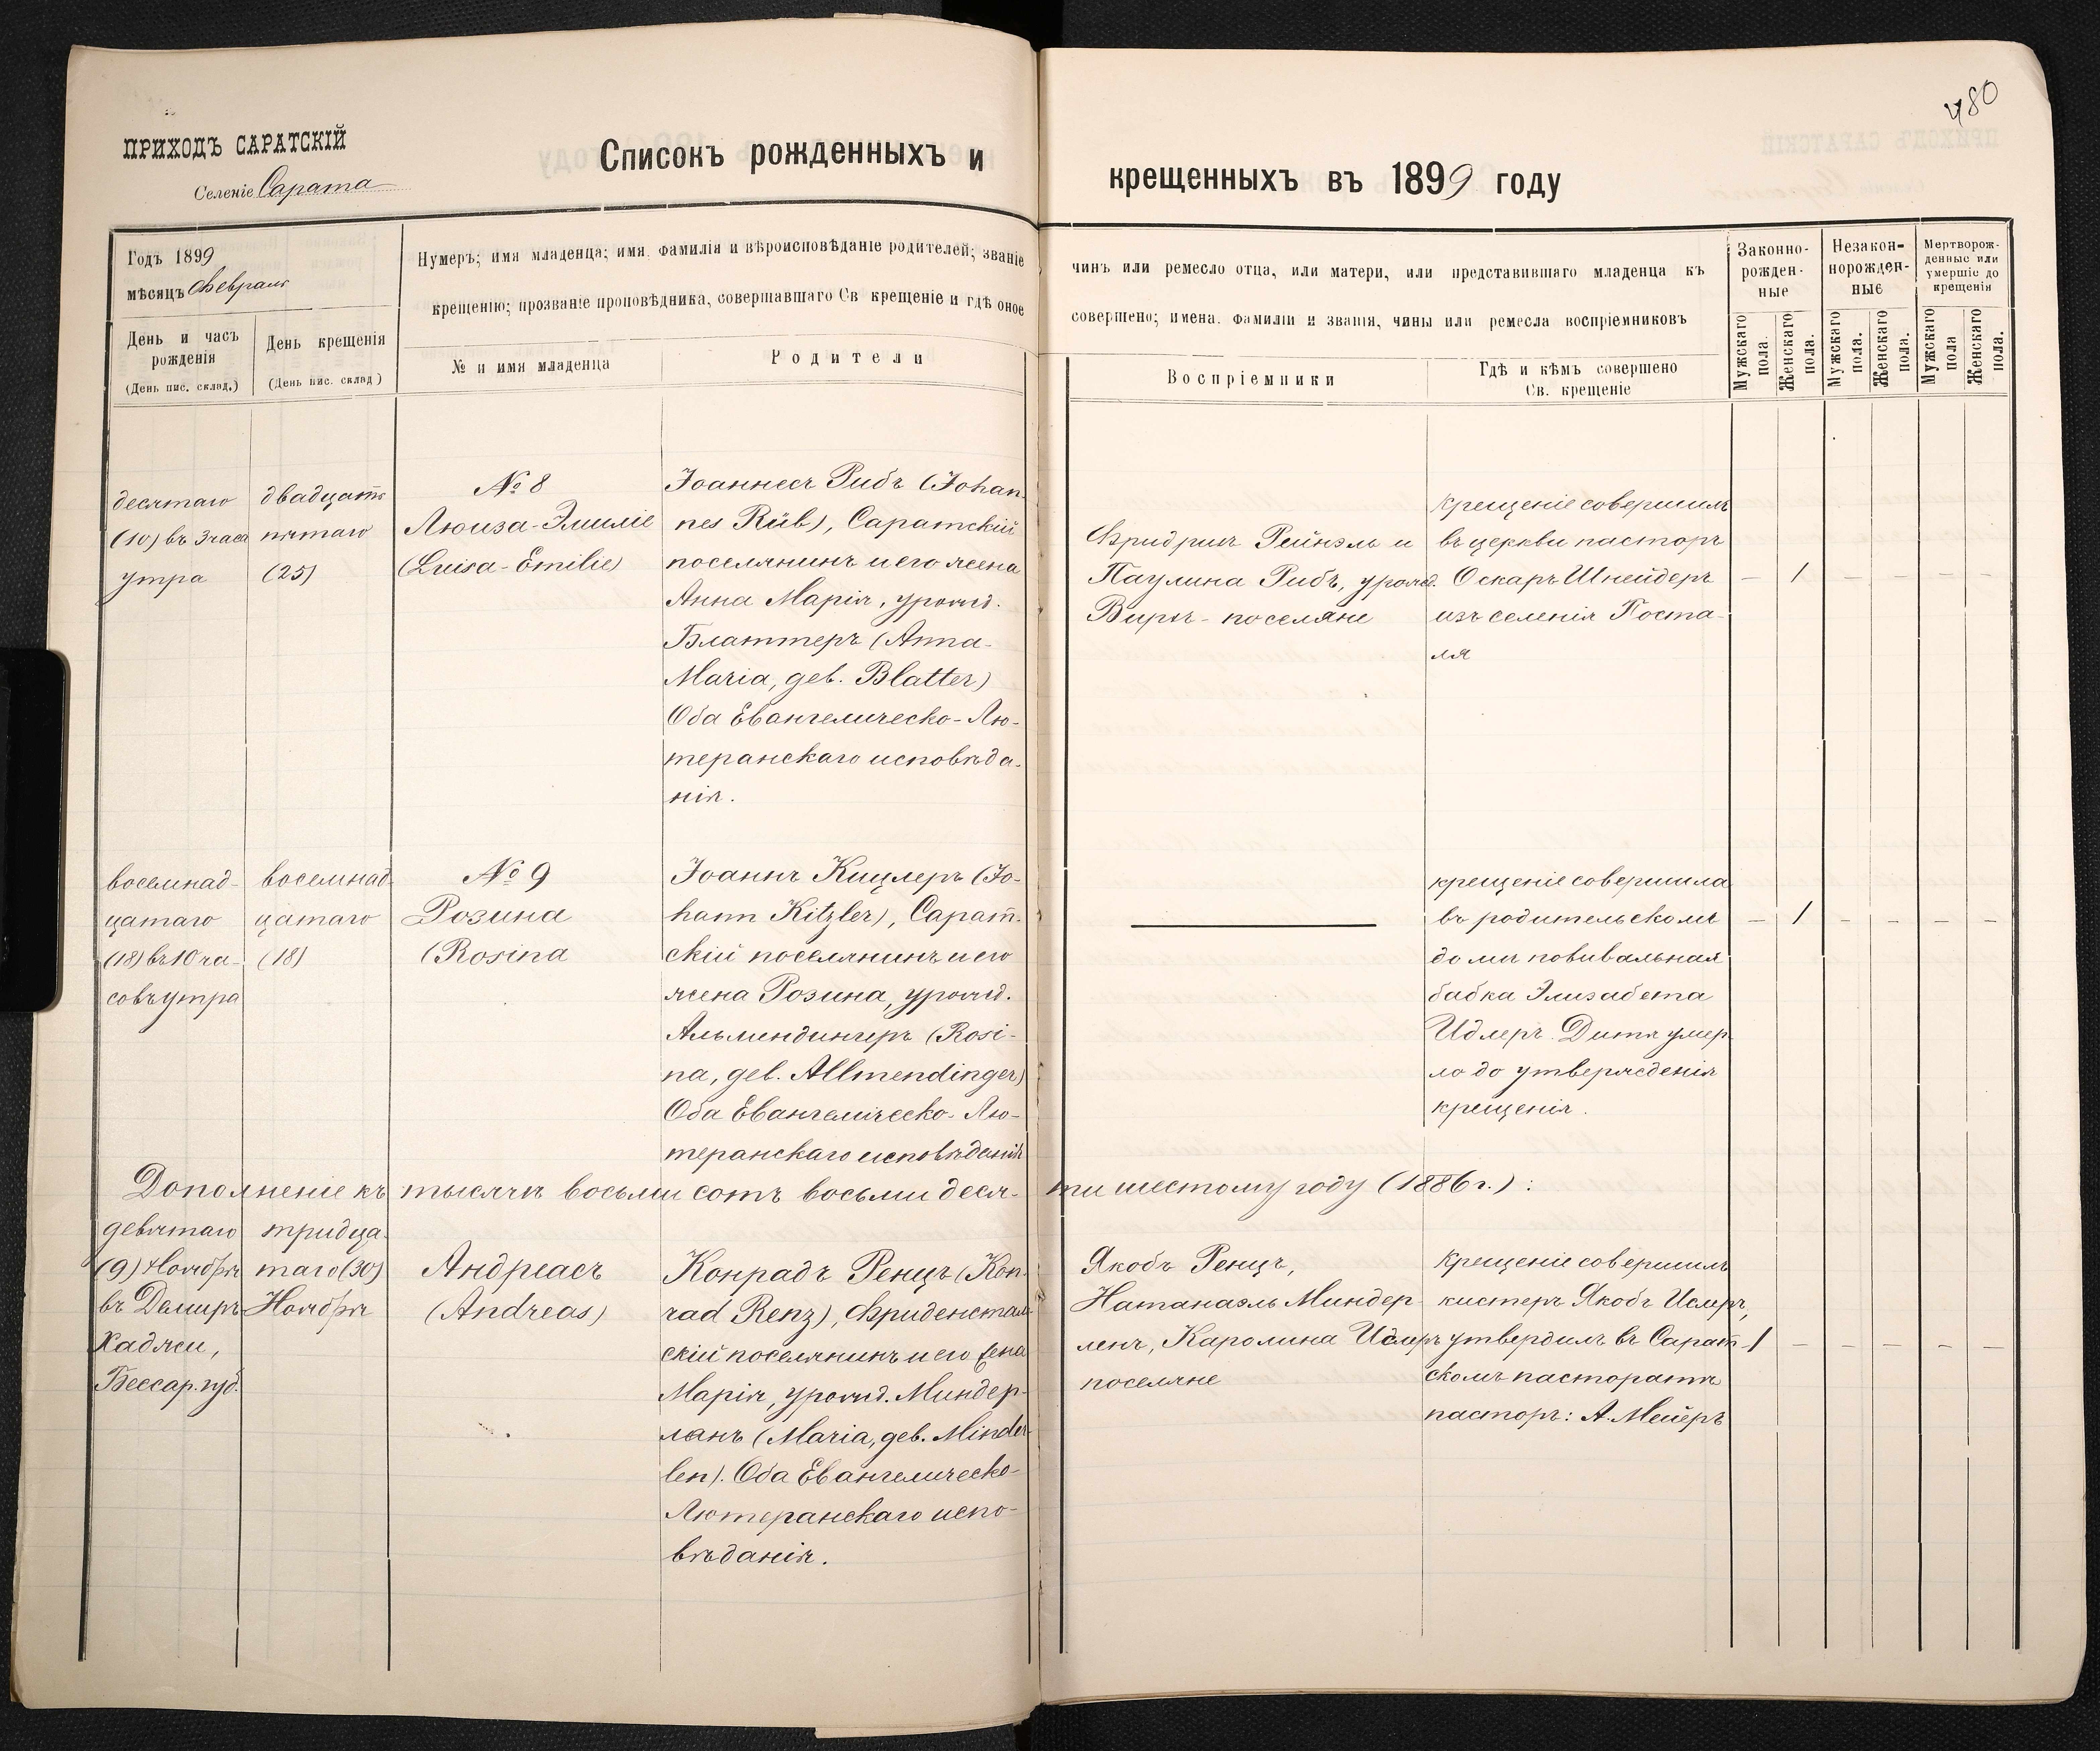 480
ПРИХОДЪ САРАТСКІЙ
Селеніе Сарата
Списокъ рожденныхъ и
крещенныхъ въ 1899 году
Годъ 1899
мѣсяцъ Февраль
День и часъ
рожденія
(День пис. склад.)
День крещенія
(День пис. склад)
Нумеръ; имя младенца; имя. фамилія и вѣроисповѣданіе родителей; званіе
крещенію; прозваніе проповѣдника, совершавшаго Св крещеніе и гдѣ оное
№ и имя младенца
Родители
чинъ или ремесло отца, или матери, или представившаго младенца къ
совершено; имена. фамиліи и званія, чины или ремесла воспріемниковъ
Воспріемники
Гдѣ и кѣмъ совершено
Св. крещеніе
Законно-
рожден-
ные
Незакон-
норожден-
ные
Мертворож-
денные или
умершіе до
крещенія
Мужскаго
пола.
Женскаго
пола.
Мужскаго
пола.
Женскаго
пола.
Мужскаго
пола
Женскаго
пола.
десятаго
(10) въ 3 часа
утра
двадцать
пятаго
(25)
№ 8
Люиза-Эмиліе
(Luisa-Emilie)
Іоаннесъ Рибъ (Johan-
nes Rüb), Саратскій
поселянинъ и его жена
Анна Марія, урожд.
Блаттеръ (Anna-
Maria, geb. Blatter)
Оба Евангелическо-Лю-
теранскаго исповѣда-
нія.
Фридрихъ Рейнэль и
Паулина Рибъ, урожд.
Вирт- поселяне
крещеніе совершилъ
въ церкви пасторъ
Оскаръ Шнейдеръ
изъ селенія Поста-
ля
— 1 — — —
восемнад-
цатаго
(18) въ 10 ча-
совъ утра
восемнад-
цатаго
(18)
№ 9
Розина
(Rosina
Іоаннъ Кицлеръ (Jo-
hann Kitzler), Сарат-
скій поселянинъ и его
жена Розина, урожд.
Альмендингеръ (Rosi-
na, geb. Allmendinger)
Оба Евангелическо-Лю-
теранскаго исповѣданія
крещеніе совершила
въ родительскомъ
домѣ повивальная
бабка Элизабета
Идлеръ. Дитя умер-
ло до утвержденія
крещенія.
— 1 — — — —
Дополненіе къ тысяча восьми сотъ восьми деся-
ти шестому году (1886 г.):
девятаго
(9) Ноября
въ Демиръ
Хаджи,
Бессар. губ.
тридца-
таго (30)
Ноября
Андреасъ
(Andreas)
Конрадъ Ренцъ (Kon-
rad Renz), Фриденсталь-
скій поселянинъ и его жена
Марія, урожд. Миндер-
ланъ (Maria, geb. Minder-
len). Оба Евангелическо-
Лютеранскаго испо-
вѣданія.
Якобъ Ренцъ,
Натанаэль Миндер-
ленъ, Каролина Идлеръ
поселяне
Крещеніе совершилъ
кистеръ Якобъ Ислеръ,
утвердилъ въ Сарат-
скомъ пасторатѣ
пасторъ: А. Мейеръ
1 — — — — —